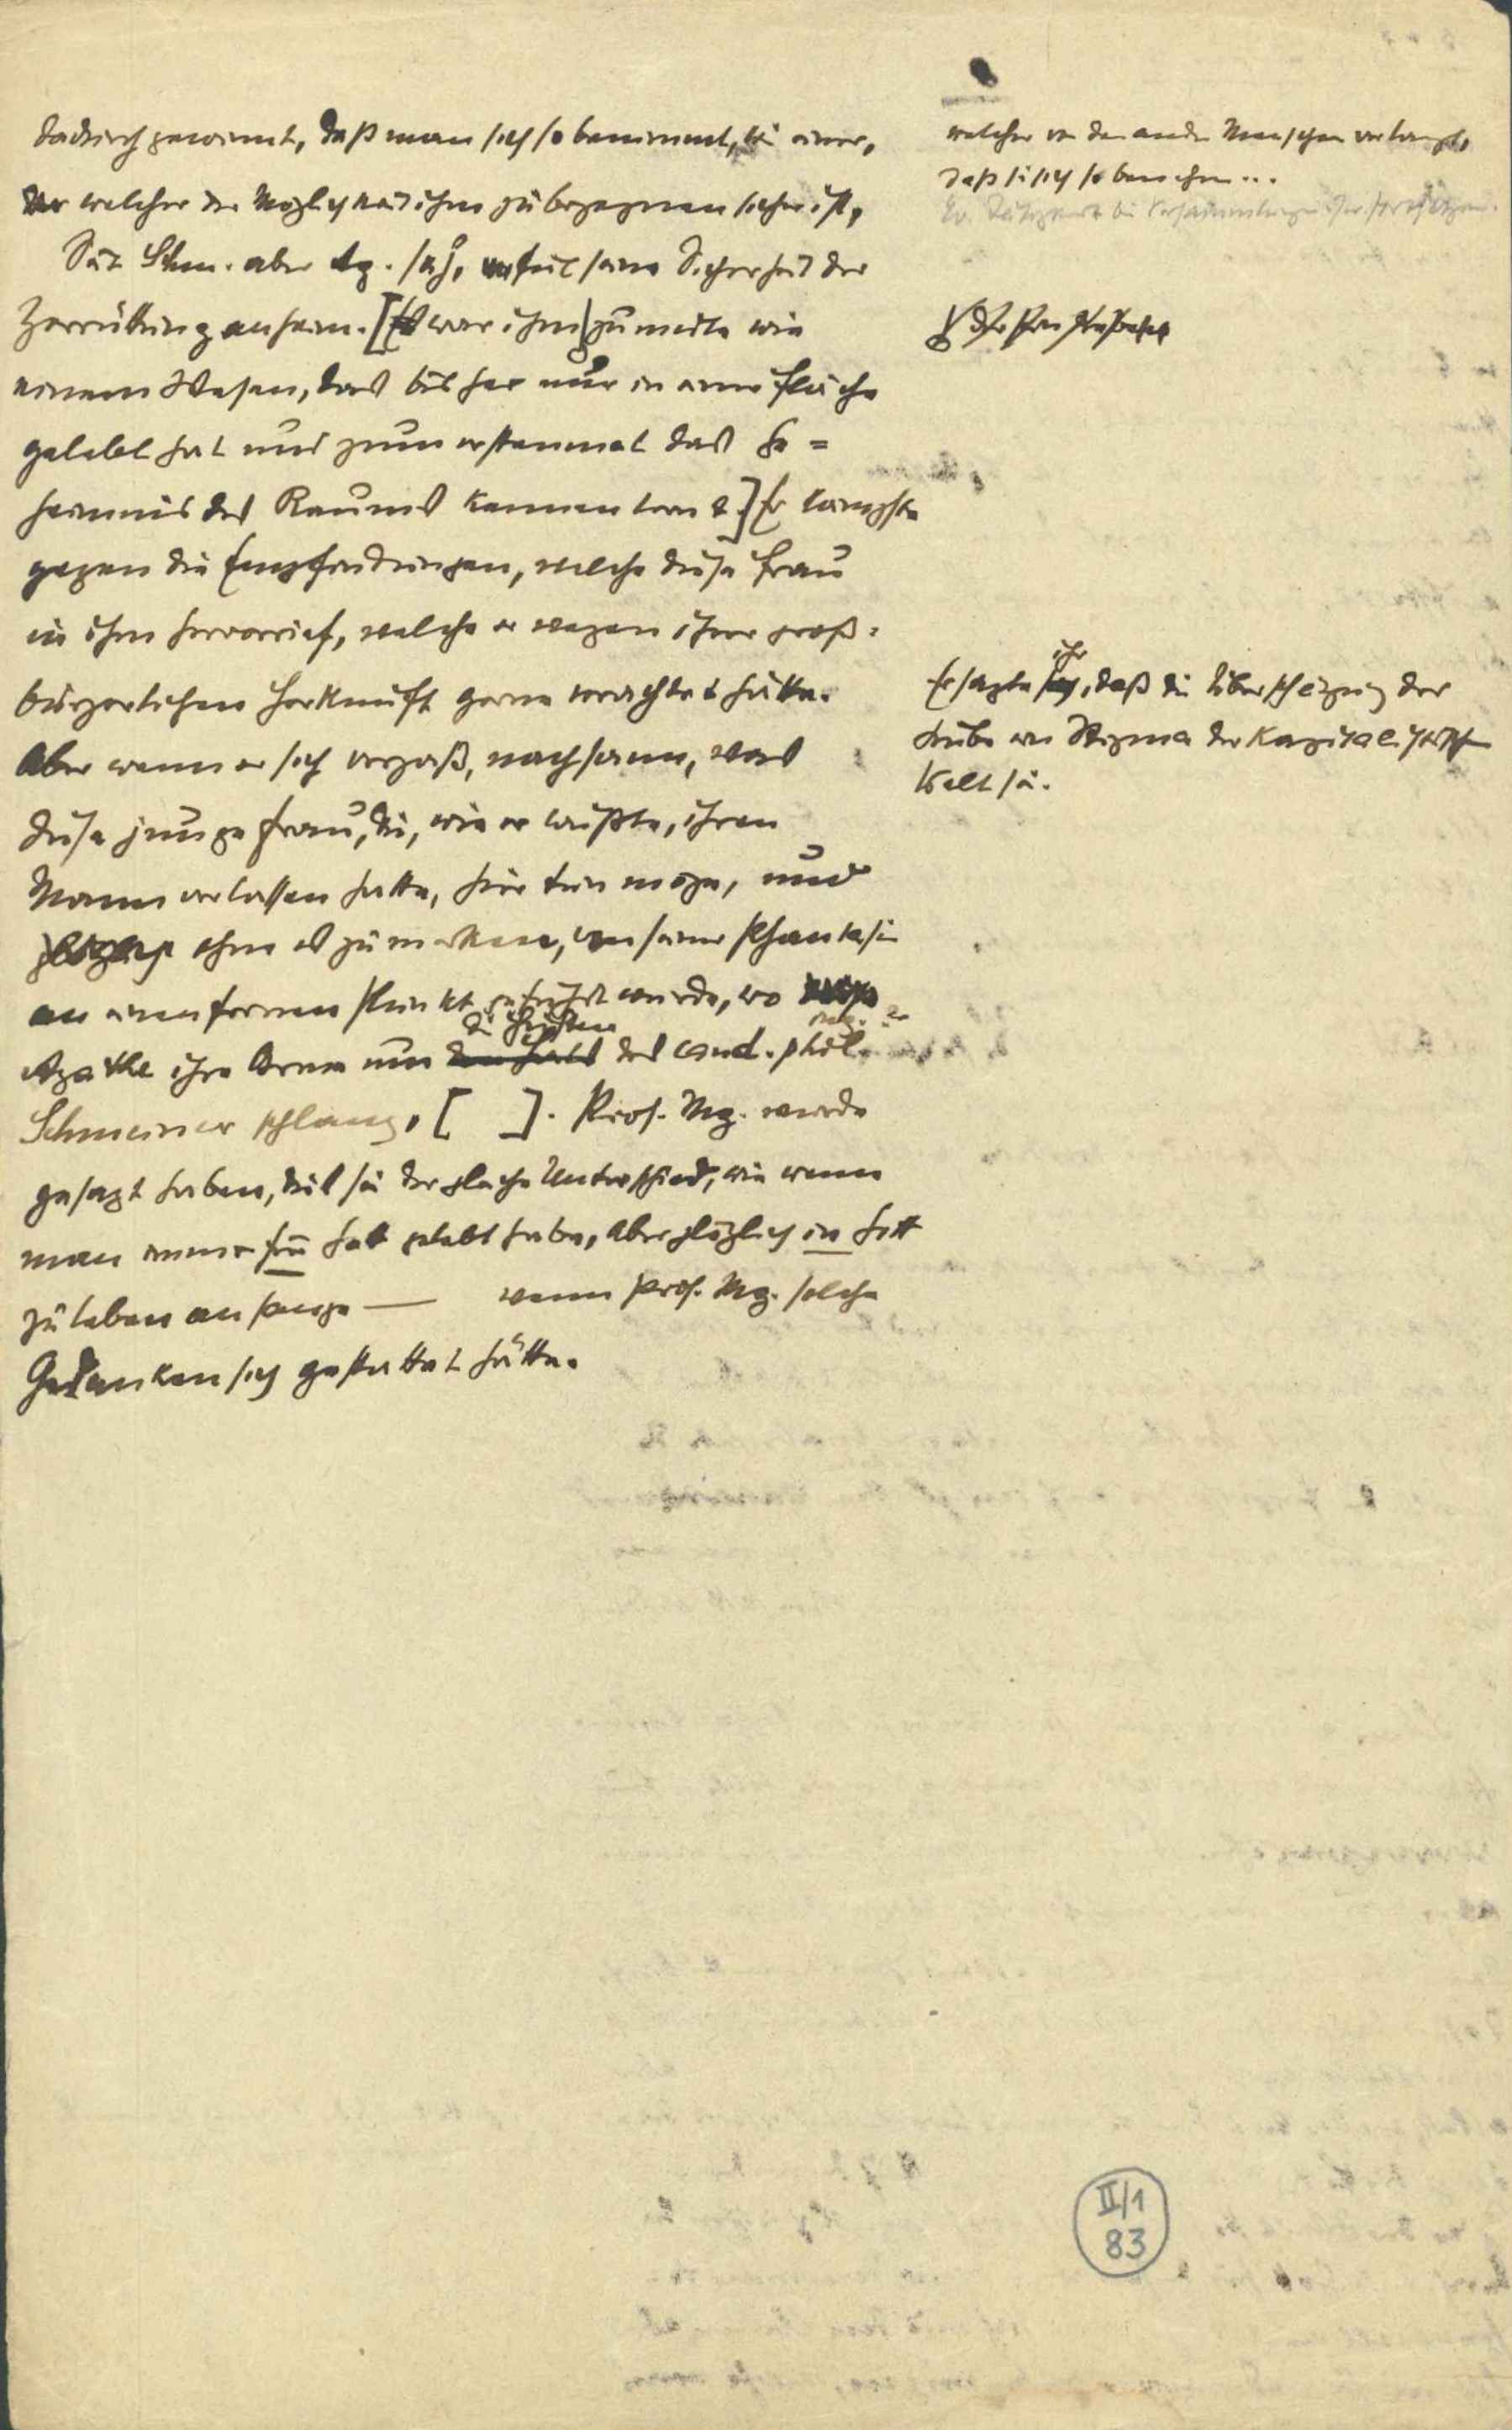 dadurch gewinnt, daß man sich so benimmt, wie einer,
welcher der Möglichkeit ihm zu begegnen sicher ist,
Seit Schm. aber Ag. sah, verfiel seine Sicherheit der
Zerrüttung anheim. [Es war ihm zumute wie
einem Wesen, das bisher nur in einer Fläche
gelebt hat und zum erstenmal das Ge=
heimnis des Raums kennen lernt.] Er kämpfte
gegen die Empfindungen, welche diese Frau
in ihm hervorrief, welche er wegen ihrer groß=
bürgerlichen Herkunft gerne verachtet hätte.
Aber wenn er sich vergaß, nachsann, was
diese junge Frau, die, wie er wußte, ihren
Mann verlassen hatte, hier tun möge, und
ohne es zu merken, von seiner Phantasie
an einen fernen Punkt geführt wurde, wo
die Hüften
Agathe ihre Arme um den Hals des cand. phil.
Schmeisser schlang, [ ]. Prof. Lg. würde
gesagt haben, das sei der gleiche Unterschied, wie wenn
man immer für Gott gelebt habe, aber plötzlich in Gott
zu leben anfange — wenn Prof. Lg. solche
Gedanken sich gestattet hätte.
welcher von den andern Menschen verlangt,
daß sie sich so benehmen...
ihr
Er sagte sich, daß die Überschätzung der
Liebe ein Stigma der kapitalistischen
Welt sei.
II/1
83